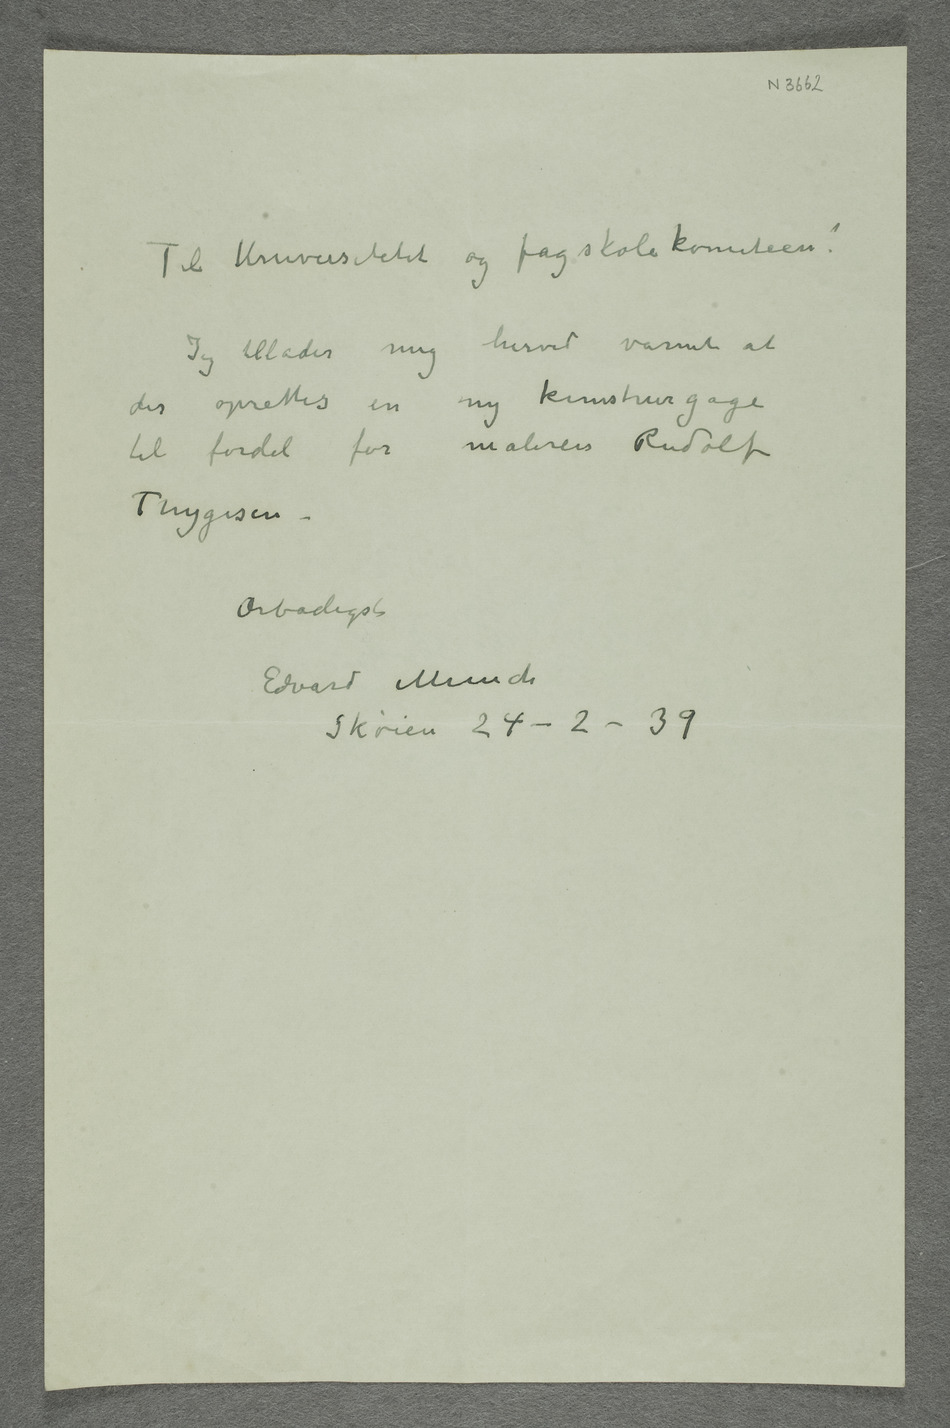 N 3662
Til Universitetet og fagskolekomiteen!
Jeg tillader mig herved varmt at
der oprettes en ny kunstnergage
til fordel for maleren Rudolf
Thygesen –
Ærbødigst
Edvard Munch
Skøien 24 – 2 – 39